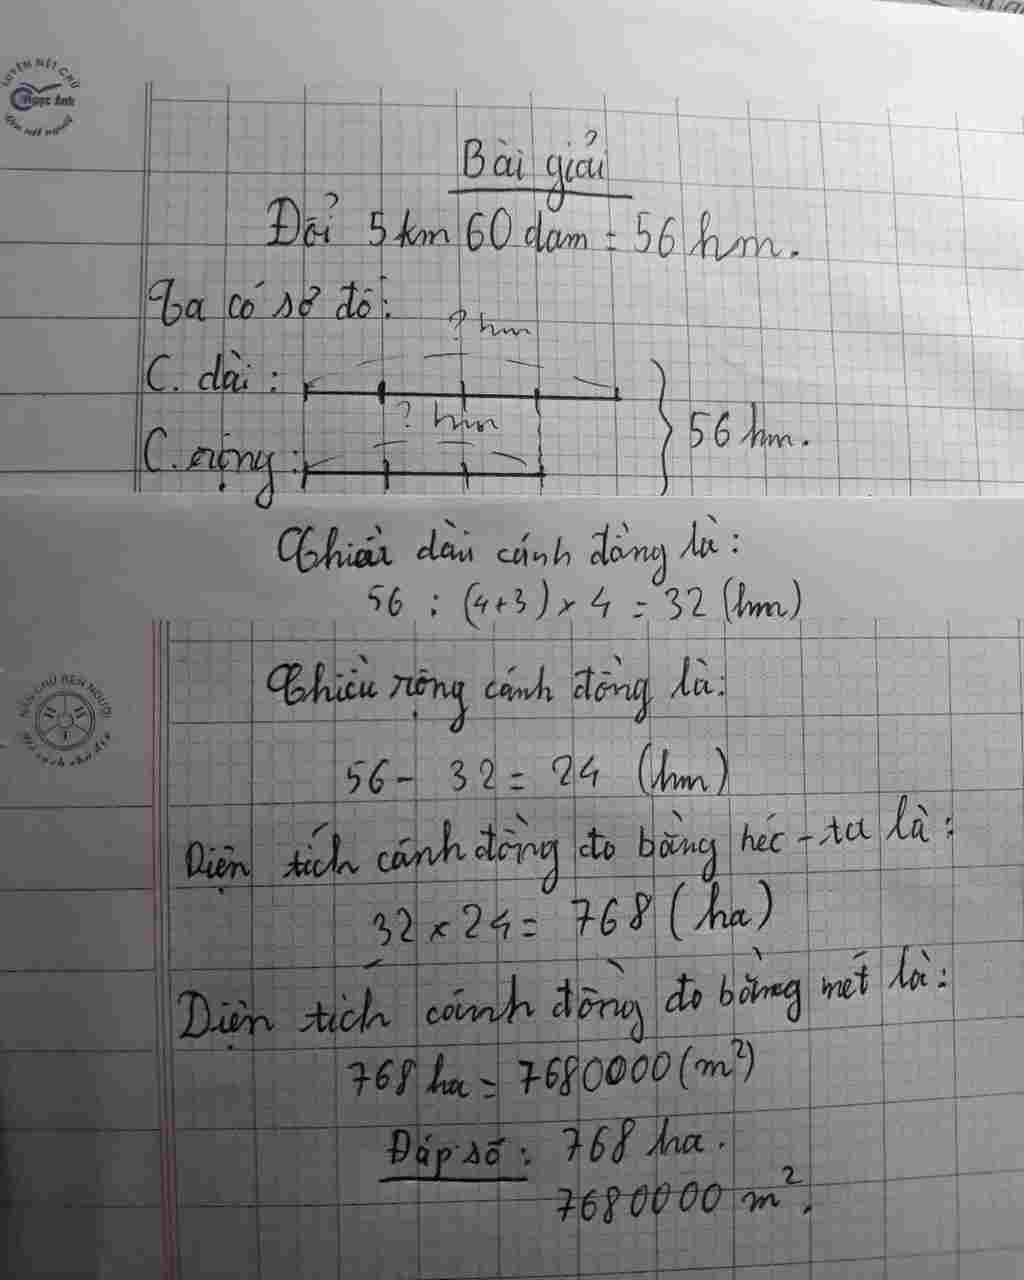 LUYỆN NÉT CHỮ
Ngọc Ánh
Bài giải
Đổi 5 km 60 dam = 56 hm.
Ta có sơ đồ:
? hm
C. dài:
? hm
56 hm.
C. rộng:
Chiều dài cánh đồng là:
56 : (4+3) × 4 = 32 (hm)
Chiều rộng cánh đồng là:
56 - 32 = 24 (hm)
Diện tích cánh đồng đo bằng héc-ta là:
32 × 24 = 768 (ha)
Diện tích cánh đồng đo bằng mét là:
768 ha = 7680000 (m²)
Đáp số: 768 ha.
7680000 m².